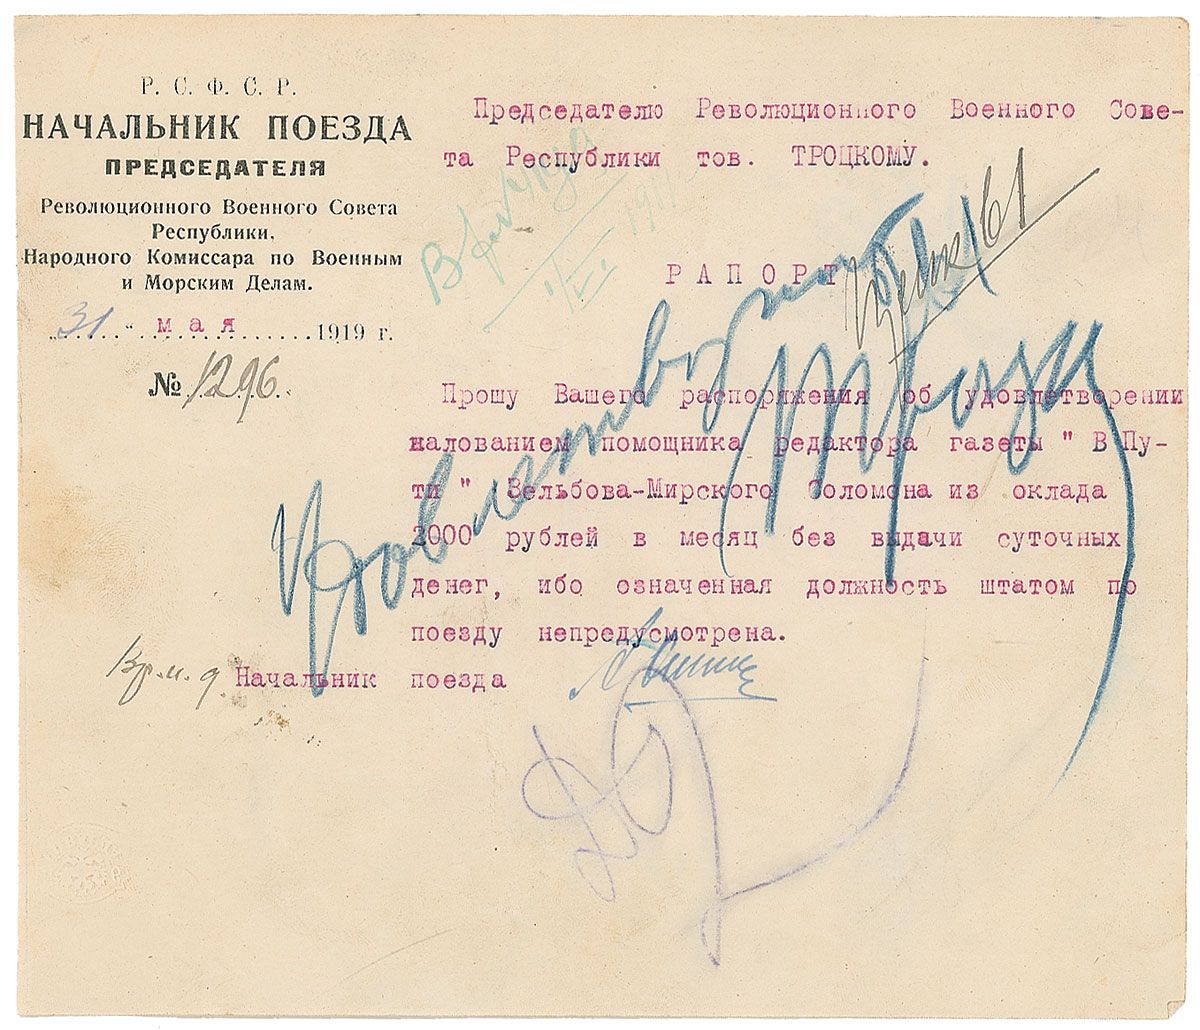 Р. С. Ф. С. Р.
НАЧАЛЬНИК ПОЕЗДА
ПРЕДСЕДАТЕЛЯ
Революционного Военного Совета
Республики,
Народного Комиссара по Военным
и Морским Делам.
„31“ мая 1919 г.
№ 1296.
Председателю Революционного Военного Сове-
та Республики тов. ТРОЦКОМУ.
РАПОРТ
Прошу Вашего распоряжения об удовлетворении
жалованием помощника редактора газеты " В Пу-
ти " Зельбова-Мирского Соломона из оклада
2000 рублей в месяц без выдачи суточных
денег, ибо означенная должность штатом по
поезду непредусмотрена.
Вр.и.д. Начальник поезда
Удовлетворить